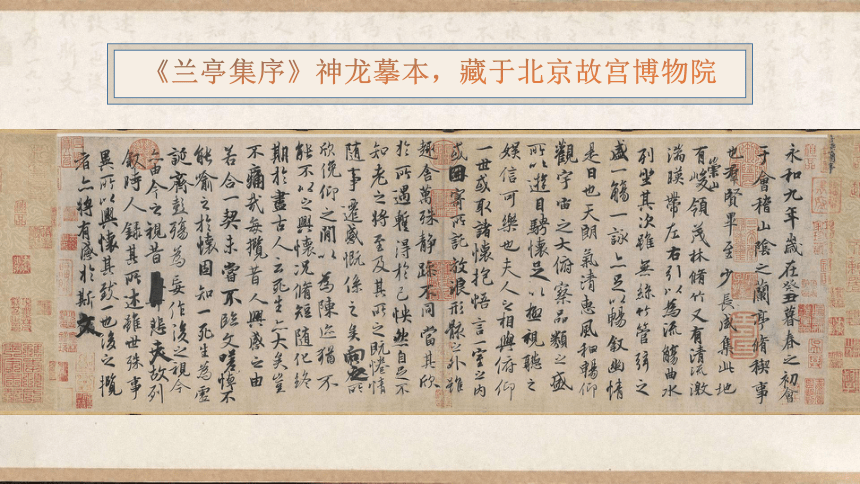 《兰亭集序》神龙摹本，藏于北京故宫博物院
永和九年歲在癸丑暮春之初會
于會稽山陰之蘭亭脩稧事
也羣賢畢至少長咸集此地
崇山
有峻領茂林脩竹又有清流激
湍暎帶左右引以為流觴曲水
列坐其次雖無絲竹管弦之
盛一觴一詠亦足以暢叙幽情
是日也天朗氣清惠風和暢仰
觀宇宙之大俯察品類之盛
所以遊目騁懷足以極視聽之
娛信可樂也夫人之相與俯仰
一世或取諸懷抱悟言一室之內
或因寄所託放浪形骸之外雖
趣舍萬殊靜躁不同當其欣
於所遇暫得於己怏然自足不
知老之將至及其所之既惓情
隨事遷感慨係之矣向之所
欣俛仰之間以為陳迹猶不
能不以之興懷況脩短隨化終
期於盡古人云死生亦大矣豈
不痛哉每攬昔人興感之由
若合一契未嘗不臨文嗟悼不
能喻之於懷固知一死生為虛
誕齊彭殤為妄作後之視今
亦由今之視昔悲夫故列
敘時人錄其所述雖世殊事
異所以興懷其致一也後之攬
者亦將有感於斯文